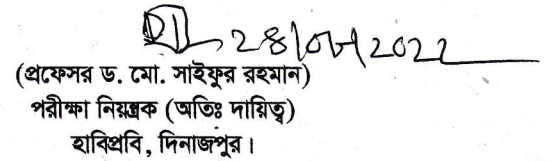 28/05/2022
(প্রফেসর ড. মো. সাইফুর রহমান)
পরীক্ষা নিয়ন্ত্রক (অতিঃ দায়িত্ব)
হাবিপ্রবি, দিনাজপুর।